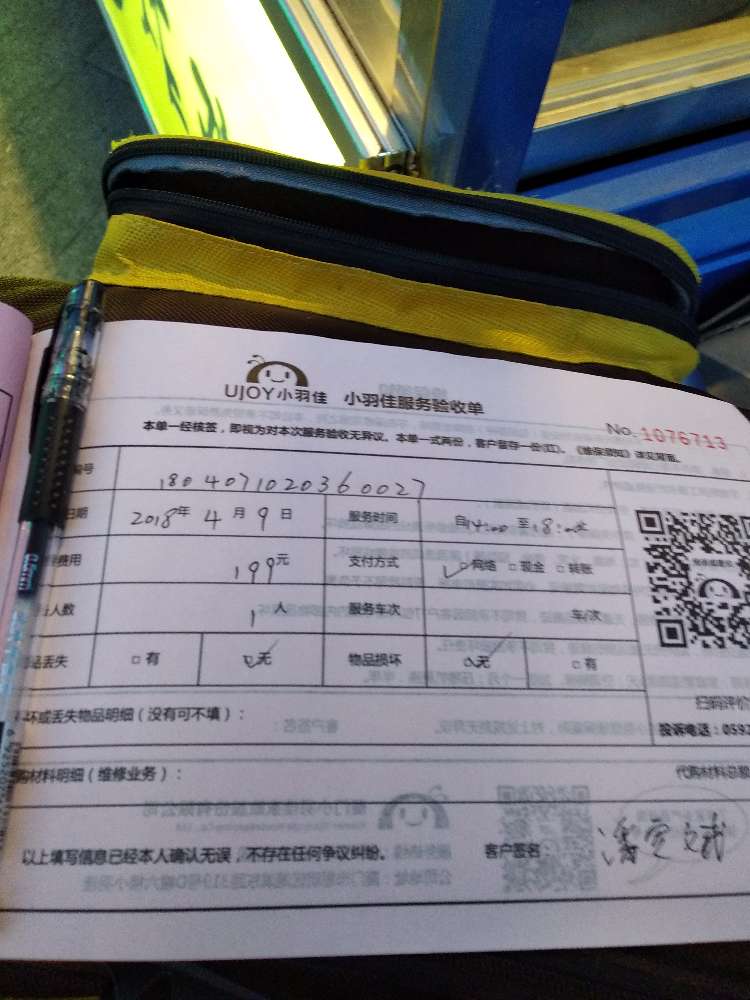 UJOY小羽佳 小羽佳服务验收单
No. 1076713
本单一经核签，即视为对本次服务验收无异议。本单一式两份，客户留存一份(红)。《维保须知》详见背面。
号 1804071020360027
日期 2018年 4月 9日 服务时间 自14:00 至18:00
费用 199元 支付方式 ✓□网络 □现金 □转账
人数 1人 服务车次 车/次
品丢失 □有 ☑无 物品损坏 ☑无 □有
坏或丢失物品明细（没有可不填）：
扫码评价
投诉电话：0592
购材料明细（维修业务）： 代购材料总额
以上填写信息已经本人确认无误，不存在任何争议纠纷。 客户签名